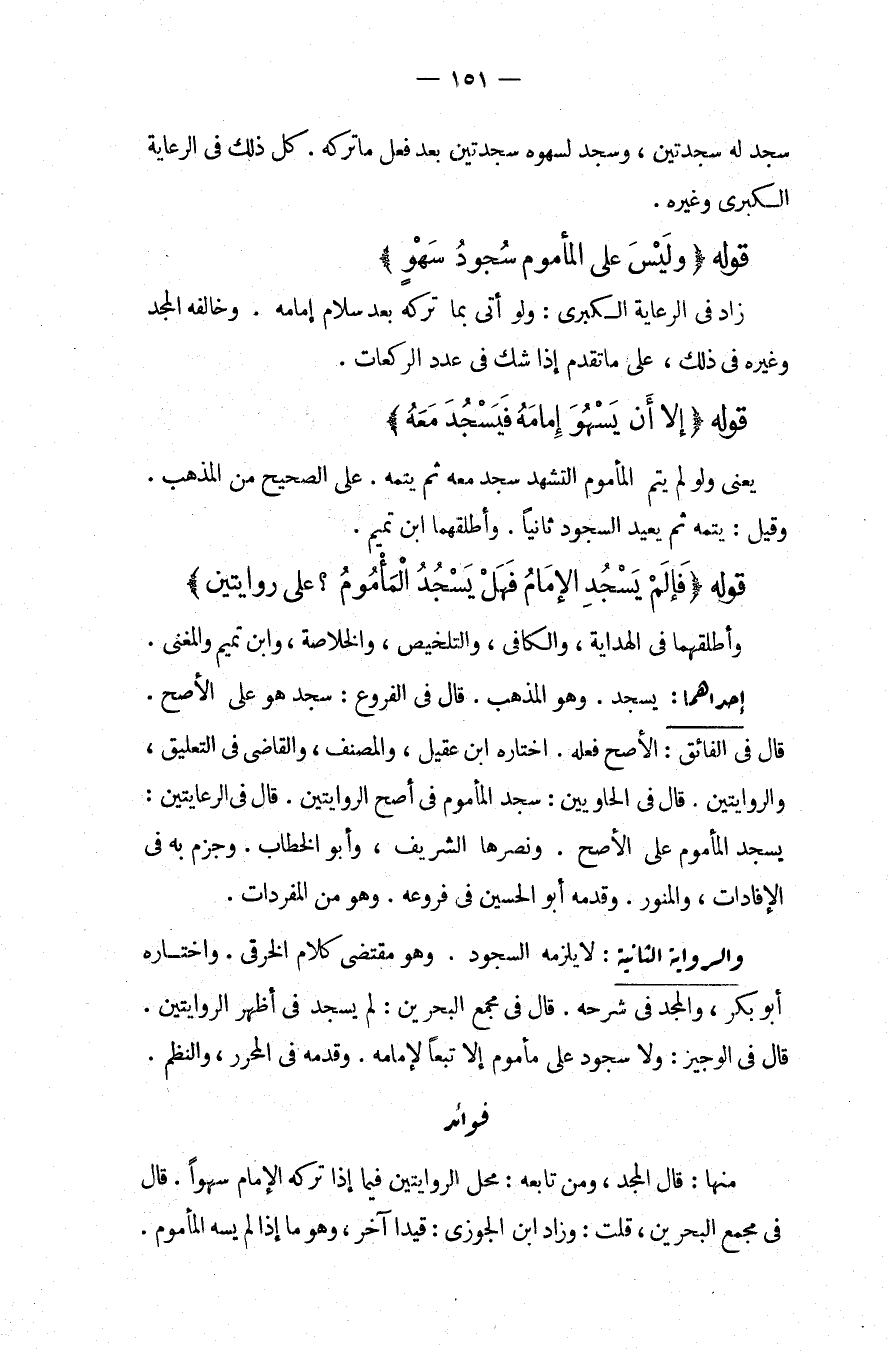 — ١٥١ —
سجد له سجدتين ، وسجد لسهوه سجدتين بعد فعل ماتركه . كل ذلك فى الرعاية
الكبرى وغيره .
قوله ﴿ ولَيْسَ على المأموم سُجودُ سَهْوٍ ﴾
زاد فى الرعاية الكبرى : ولو أتى بما تركه بعد سلام إمامه . وخالفه المجد
وغيره فى ذلك ، على ماتقدم إذا شك فى عدد الركعات .
قوله ﴿ إلا أَن يَسْهُوَ إِمامَهُ فَيَسْجُدَ مَعَهُ ﴾
يعنى ولو لم يتم المأموم التشهد سجد معه ثم يتمه . على الصحيح من المذهب .
وقيل : يتمه ثم يعيد السجود ثانياً . وأطلقهما ابن تميم .
قوله ﴿ فَإلَمْ يَسْجُدِ الإمَامُ فَهَلْ يَسْجُدُ الْمَأْمُومُ ؟ على روايتين ﴾
وأطلقهما فى الهداية ، والكافى ، والتلخيص ، والخلاصة ، وابن تميم والمغنى .
إحداهما : يسجد . وهو المذهب . قال فى الفروع : سجد هو على الأصح .
قال فى الفائق : الأصح فعله . اختاره ابن عقيل ، والمصنف ، والقاضى فى التعليق ،
والروايتين . قال فى الحاويين : سجد المأموم فى أصح الروايتين . قال فى الرعايتين :
يسجد المأموم على الأصح . ونصرها الشريف ، وأبو الخطاب . وجزم به فى
الإفادات ، والمنور . وقدمه أبو الحسين فى فروعه . وهو من المفردات .
والرواية الثانية : لايلزمه السجود . وهو مقتضى كلام الخرقى . واختاره
أبو بكر ، والمجد فى شرحه . قال فى مجمع البحرين : لم يسجد فى أظهر الروايتين .
قال فى الوجيز : ولا سجود على مأموم إلا تبعاً لإمامه . وقدمه فى المحرر ، والنظم .
فوائد
منها : قال المجد ، ومن تابعه : محل الروايتين فيما إذا تركه الإمام سهواً . قال
فى مجمع البحرين ، قلت : وزاد ابن الجوزى : قيدا آخر ، وهو ما إذا لم يسه المأموم .